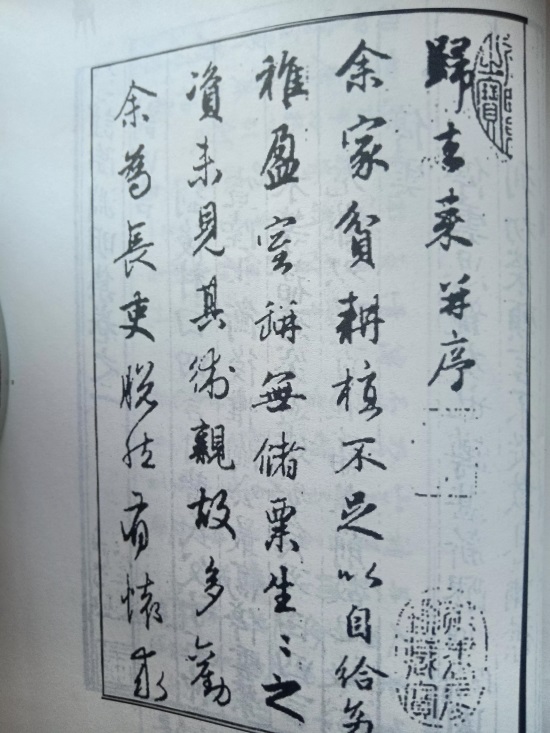 歸去來并序
余家貧耕植不足以自給幼
稚盈室缾無儲粟生〻之
資未見其術親故多勸
余為長吏脫然有懷求